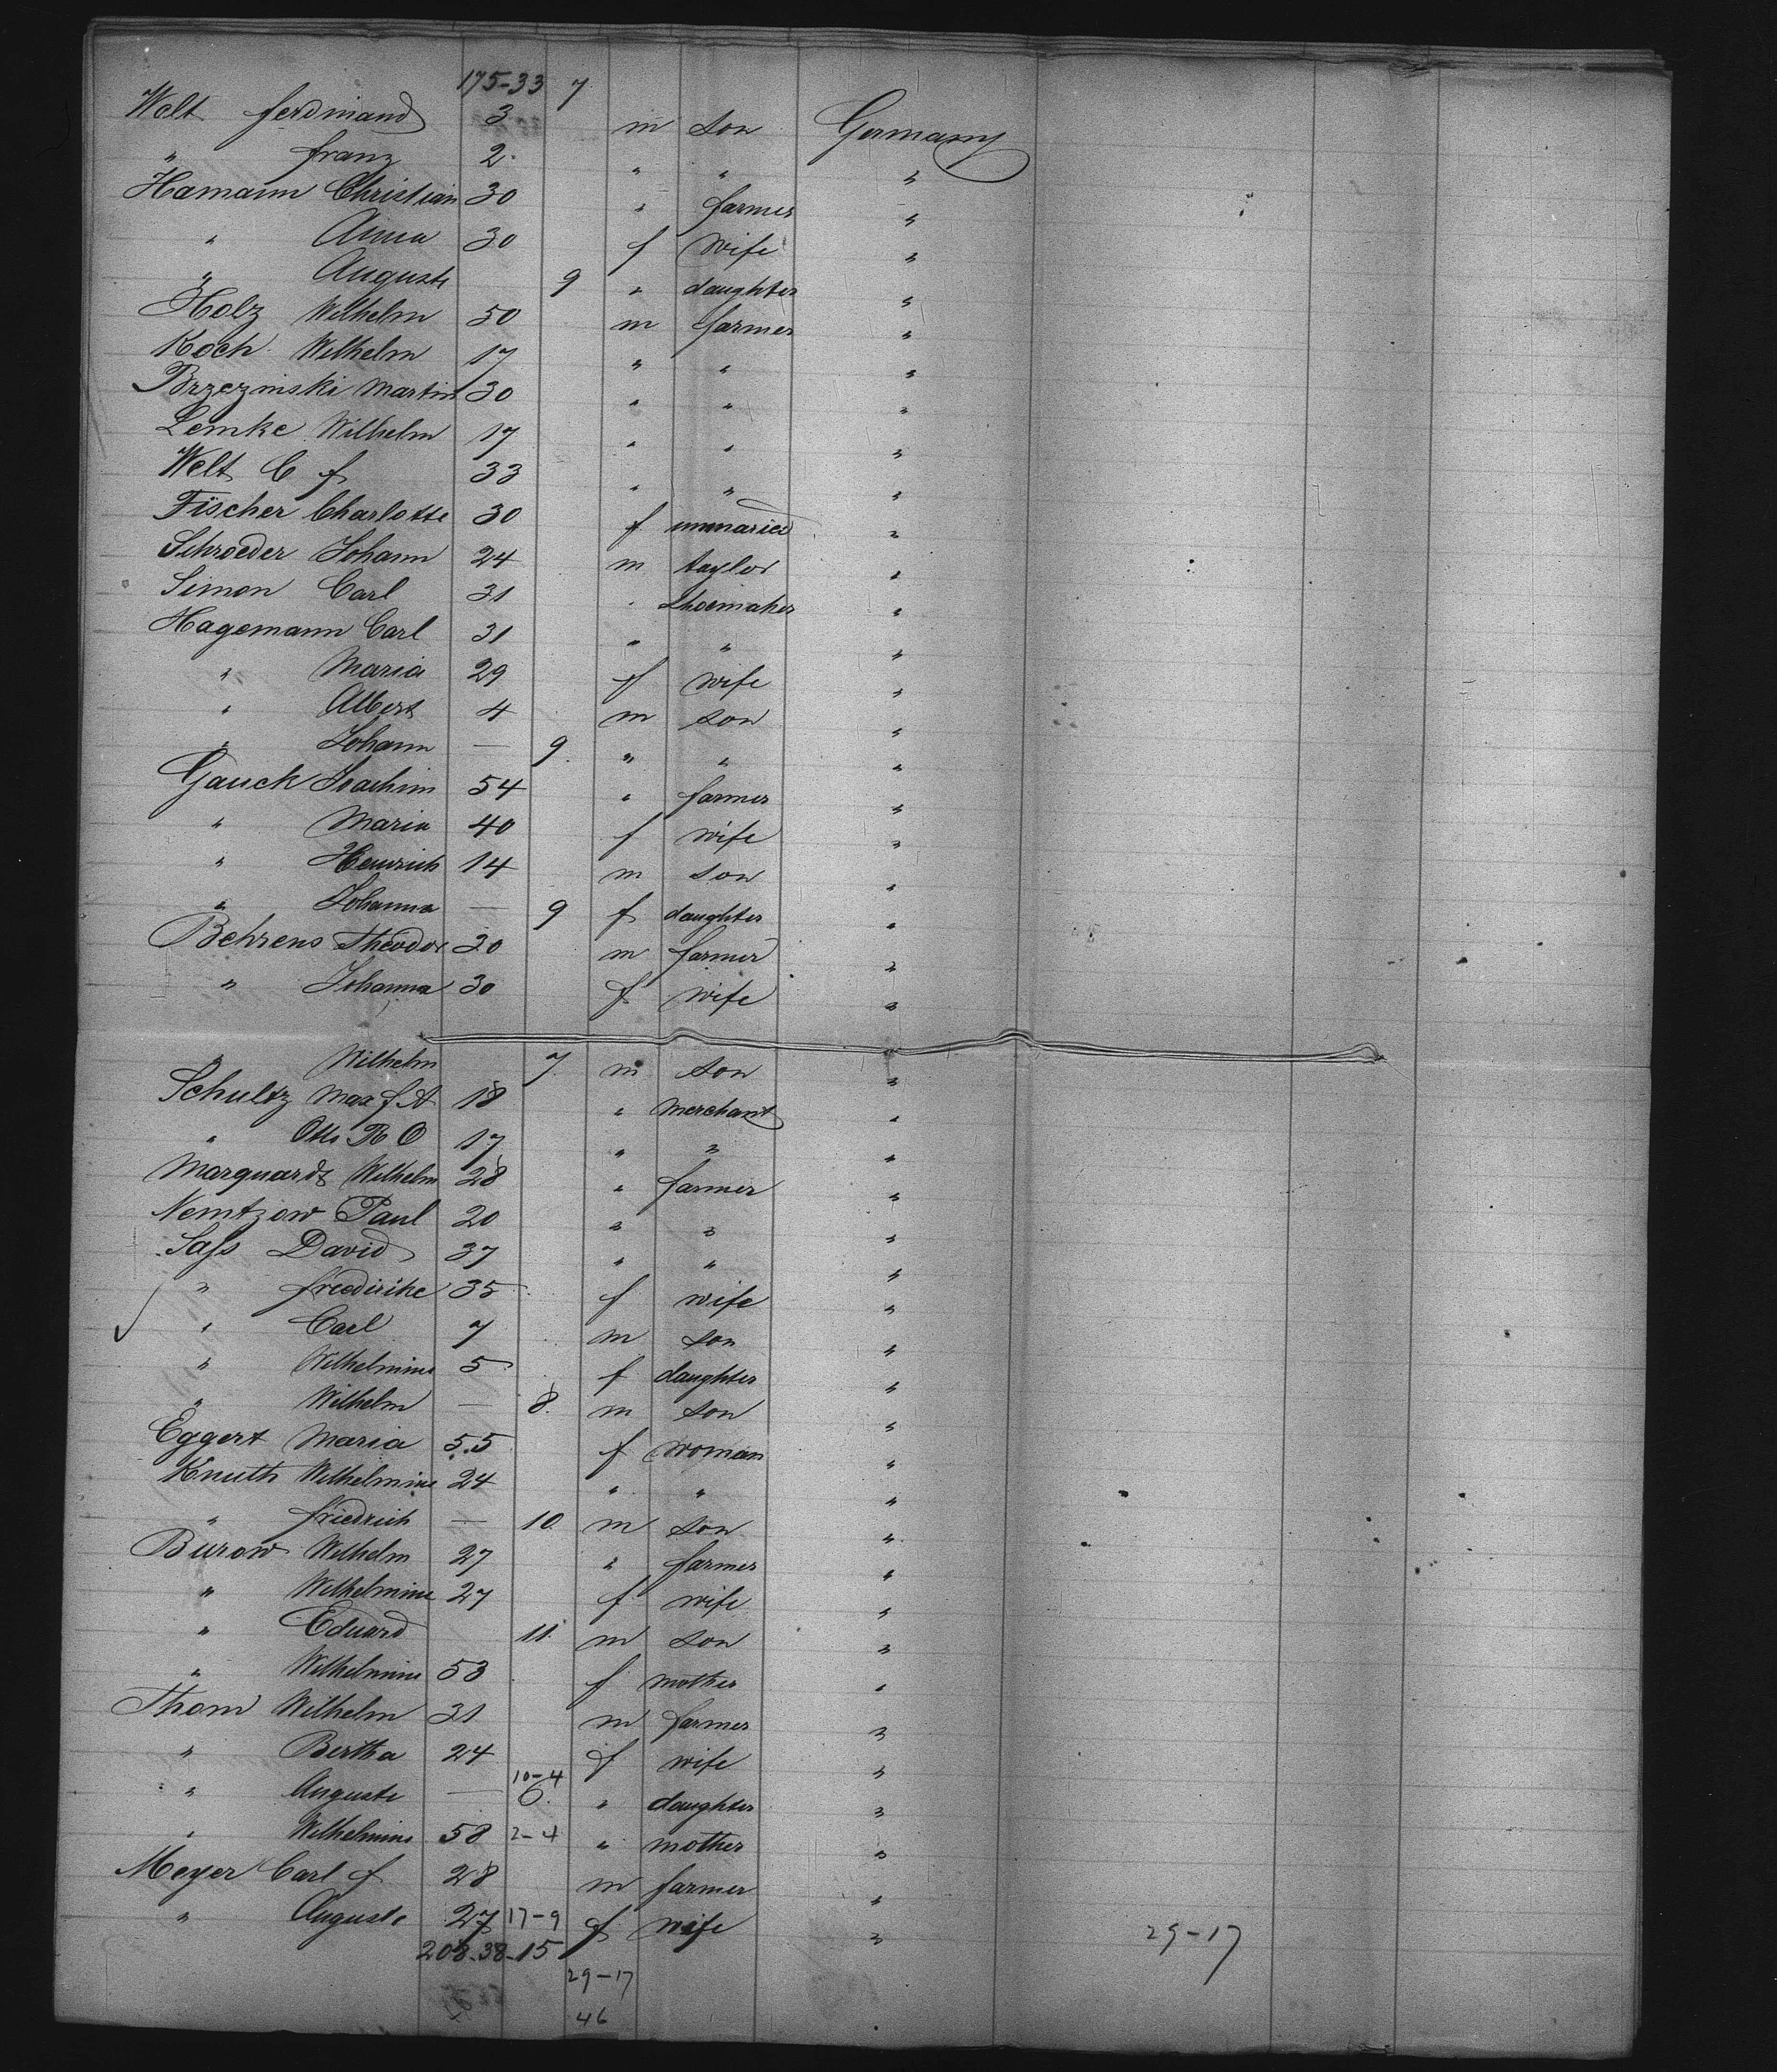 175-33 7
Welt ferdinand 3 m son Germany
" franz 2 " " "
Hamann Christian 30 " farmer "
" Anna 30 f wife "
" Auguste 9 " daughter "
Holz Wilhelm 50 m farmer "
Koch Wilhelm 17 " " "
Brzezinski Martin 30 " " "
Lemke Wilhelm 17 " " "
Welt C f 33 " " "
Fischer Charlotte 30 f unmaried "
Schroeder Johann 24 m taylor "
Simon Carl 31 " shoemaker "
Hagemann Carl 31 " " "
" Maria 29 f wife "
" Albert 4 m son "
" Johann — 9 " " "
Gauck Joachim 54 " farmer "
" Maria 40 f wife "
" Heinrich 14 m son "
" Johanna — 9 f daughter "
Behrens Theodor 30 m farmer "
" Johanna 30 f wife "
" Wilhelm 7 m son "
Schultz Max f A 18 " merchant "
" Otto R O 17 " " "
Marquardt Wilhelm 28 " farmer "
Nemtzow Paul 20 " " "
Sass David 37 " " "
" friedirike 35 f wife "
" Carl 7 m son "
" Wilhelmine 5 f daughter "
" Wilhelm — 8 m son "
Eggert Maria 55 f woman "
Knuth Wilhelmine 24 " " "
" friedrich — 10 m son "
Burow Wilhelm 27 " farmer "
" Wilhelmine 27 f wife "
" Eduard 11 m son "
" Wilhelmine 53 f mother "
Thom Wilhelm 31 m farmer "
" Bertha 24 f wife "
10-4
" Auguste — 6 " daughter "
" Wilhelmine 58 2-4 " mother "
Meyer Carl f 28 m farmer "
" Auguste 27 17-9 f wife " 29-17
208-38-15
29-17
46